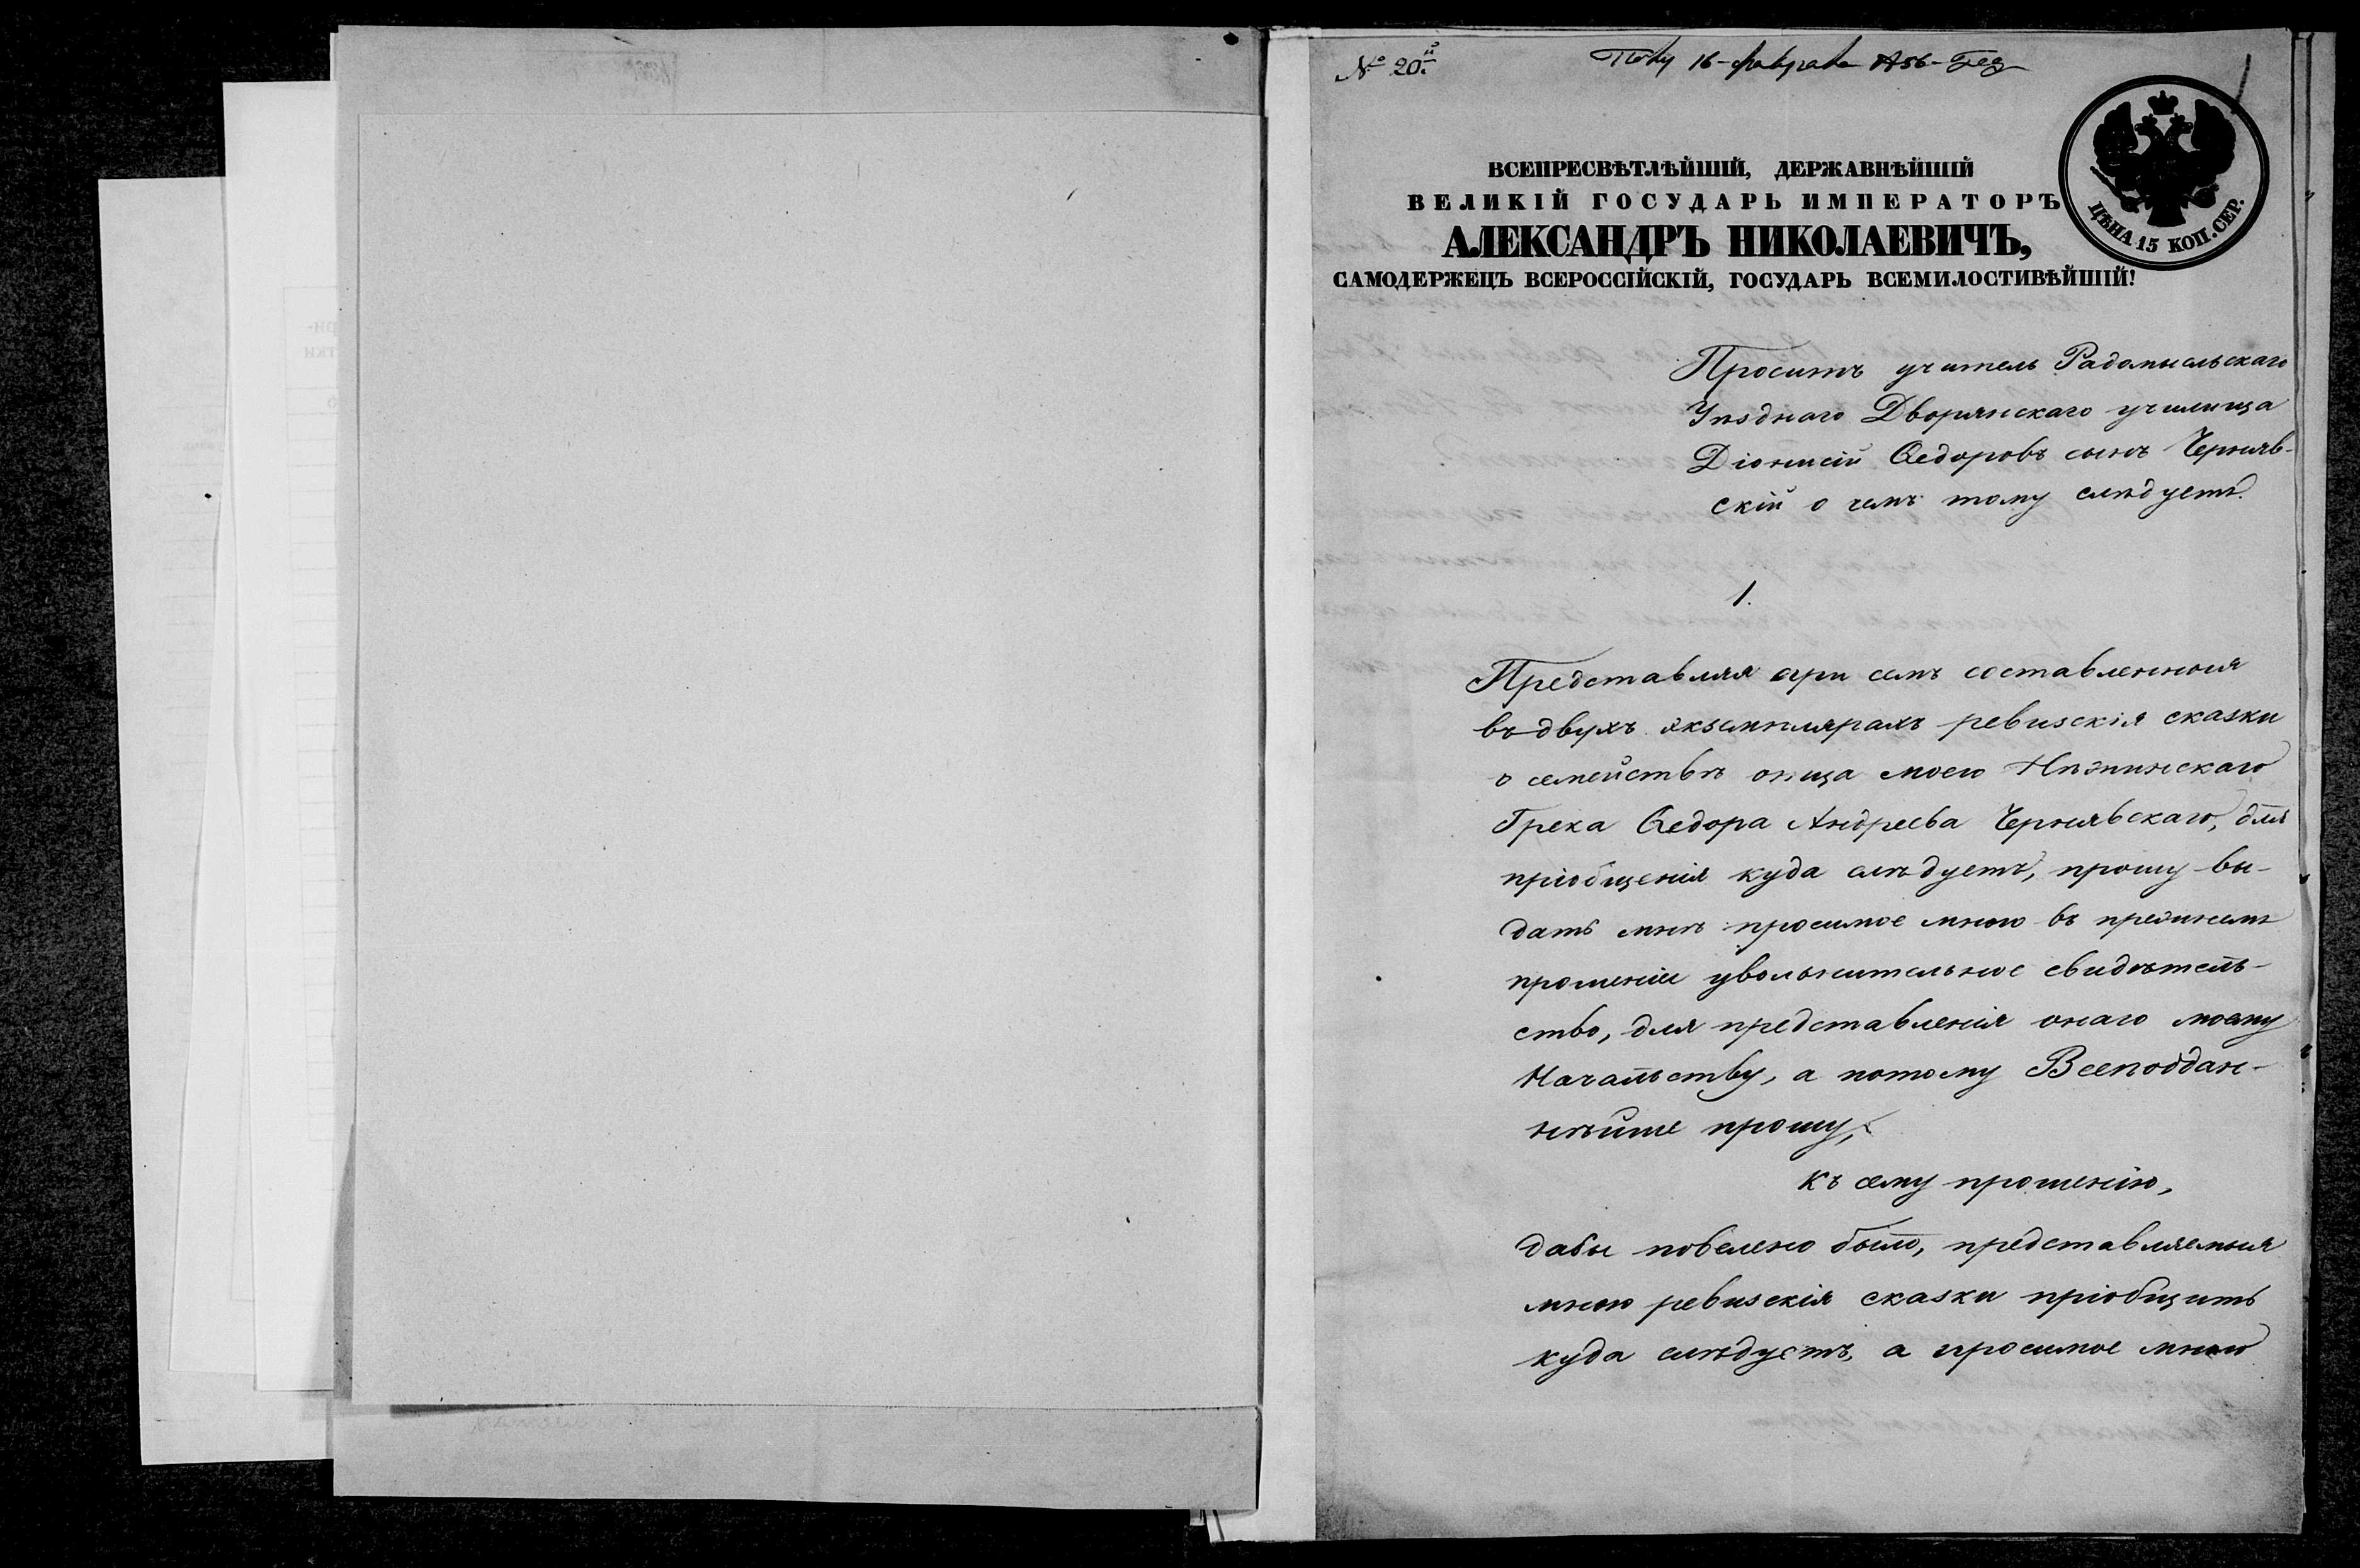 № 20й
16 февраля 1856 года
ВСЕПРЕСВѢТЛѢЙШІЙ, ДЕРЖАВНѢЙШІЙ
ВЕЛИКІЙ ГОСУДАРЬ ИМПЕРАТОРЪ
АЛЕКСАНДРЪ НИКОЛАЕВИЧЪ,
САМОДЕРЖЕЦЪ ВСЕРОССІЙСКІЙ, ГОСУДАРЬ ВСЕМИЛОСТИВѢЙШІЙ!
ЦѢНА 15 КОП. СЕР.
Проситъ учитель Радомысльскаго
Уѣзднаго Дворянскаго училища
Діонисій Ѳедоровъ сынъ Черняв-
скій о чемъ тому слѣдуетъ.
1.
Представляя при семъ составленныя
въ двухъ экземплярахъ ревизскія сказки
о семействѣ отца моего Нѣжинскаго
Грека Ѳедора Андреева Чернявскаго, для
пріобщенія куда слѣдуетъ, прошу вы-
дать мнѣ просимое мною въ прежнемъ
прошеніи увольнительное свидѣтель-
ство, для представленія онаго моему
Начальству, а потому Всеподдан-
нѣйше прошу,
къ сему прошенію,
дабы повелено было, представляемыя
мною ревизскія сказки пріобщить
куда слѣдуетъ, а просимое мною